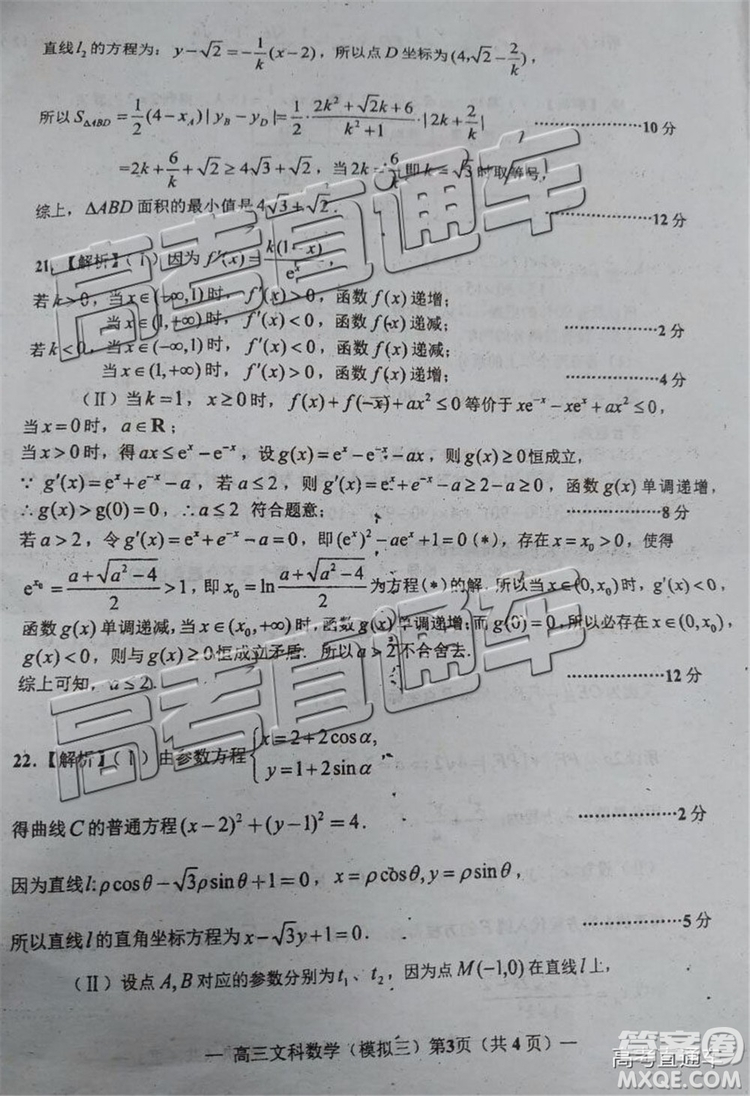 直线l₂的方程为：y-√2=-1/k(x-2)，所以点D坐标为(4,√2-2/k)，
所以S△ABD=1/2(4-x_A)|y_B-y_D|=1/2·(2k²+√2k+6)/(k²+1)·|2k+2/k| ……………10分
=2k+6/k+√2≥4√3+√2，当2k=6/k，即k=√3时取等号，
综上，△ABD面积的最小值是4√3+√2. ……………12分
21.【解析】(Ⅰ)因为f′(x)=k(1-x)/eˣ，
若k>0，当x∈(-∞,1)时，f′(x)>0，函数f(x)递增；
当x∈(1,+∞)时，f′(x)<0，函数f(x)递减； ……………2分
若k<0，当x∈(-∞,1)时，f′(x)<0，函数f(x)递减；
当x∈(1,+∞)时，f′(x)>0，函数f(x)递增； ……………4分
(Ⅱ)当k=1，x≥0时，f(x)+f(-x)+ax²≤0等价于xe⁻ˣ-xeˣ+ax²≤0，
当x=0时，a∈R；
当x>0时，得ax≤eˣ-e⁻ˣ，设g(x)=eˣ-e⁻ˣ-ax，则g(x)≥0恒成立，
∵g′(x)=eˣ+e⁻ˣ-a，若a≤2，则g′(x)=eˣ+e⁻ˣ-a≥2-a≥0，函数g(x)单调递增，
∴g(x)>g(0)=0，∴a≤2 符合题意； ……………8分
若a>2，令g′(x)=eˣ+e⁻ˣ-a=0，即(eˣ)²-aeˣ+1=0(*)，存在x=x₀>0，使得
e^(x₀)=(a+√(a²-4))/2>1，即x₀=ln(a+√(a²-4))/2为方程(*)的解，所以当x∈(0,x₀)时，g′(x)<0，
函数g(x)单调递减，当x∈(x₀,+∞)时，函数g(x)单调递增；而g(0)=0，所以必存在x∈(0,x₀)，
g(x)<0，则与g(x)≥0恒成立矛盾. 所以a>2不合舍去.
综上可知，a≤2. ……………12分
22.【解析】(Ⅰ)由参数方程{x=2+2cosα, y=1+2sinα
得曲线C的普通方程(x-2)²+(y-1)²=4. ……………2分
因为直线l:ρcosθ-√3ρsinθ+1=0，x=ρcosθ,y=ρsinθ，
所以直线l的直角坐标方程为x-√3y+1=0. ……………5分
(Ⅱ)设点A,B对应的参数分别为t₁、t₂，因为点M(-1,0)在直线l上，
— 高三文科数学（模拟三）第3页（共4页）—
高考直通车
高考直通车
答案圈
高考直通车
MXQE.COM